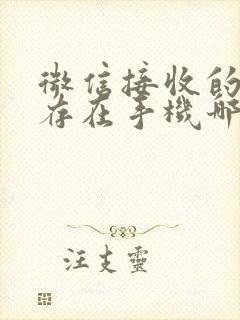 微信接收的
存在手機哪
汪支靈